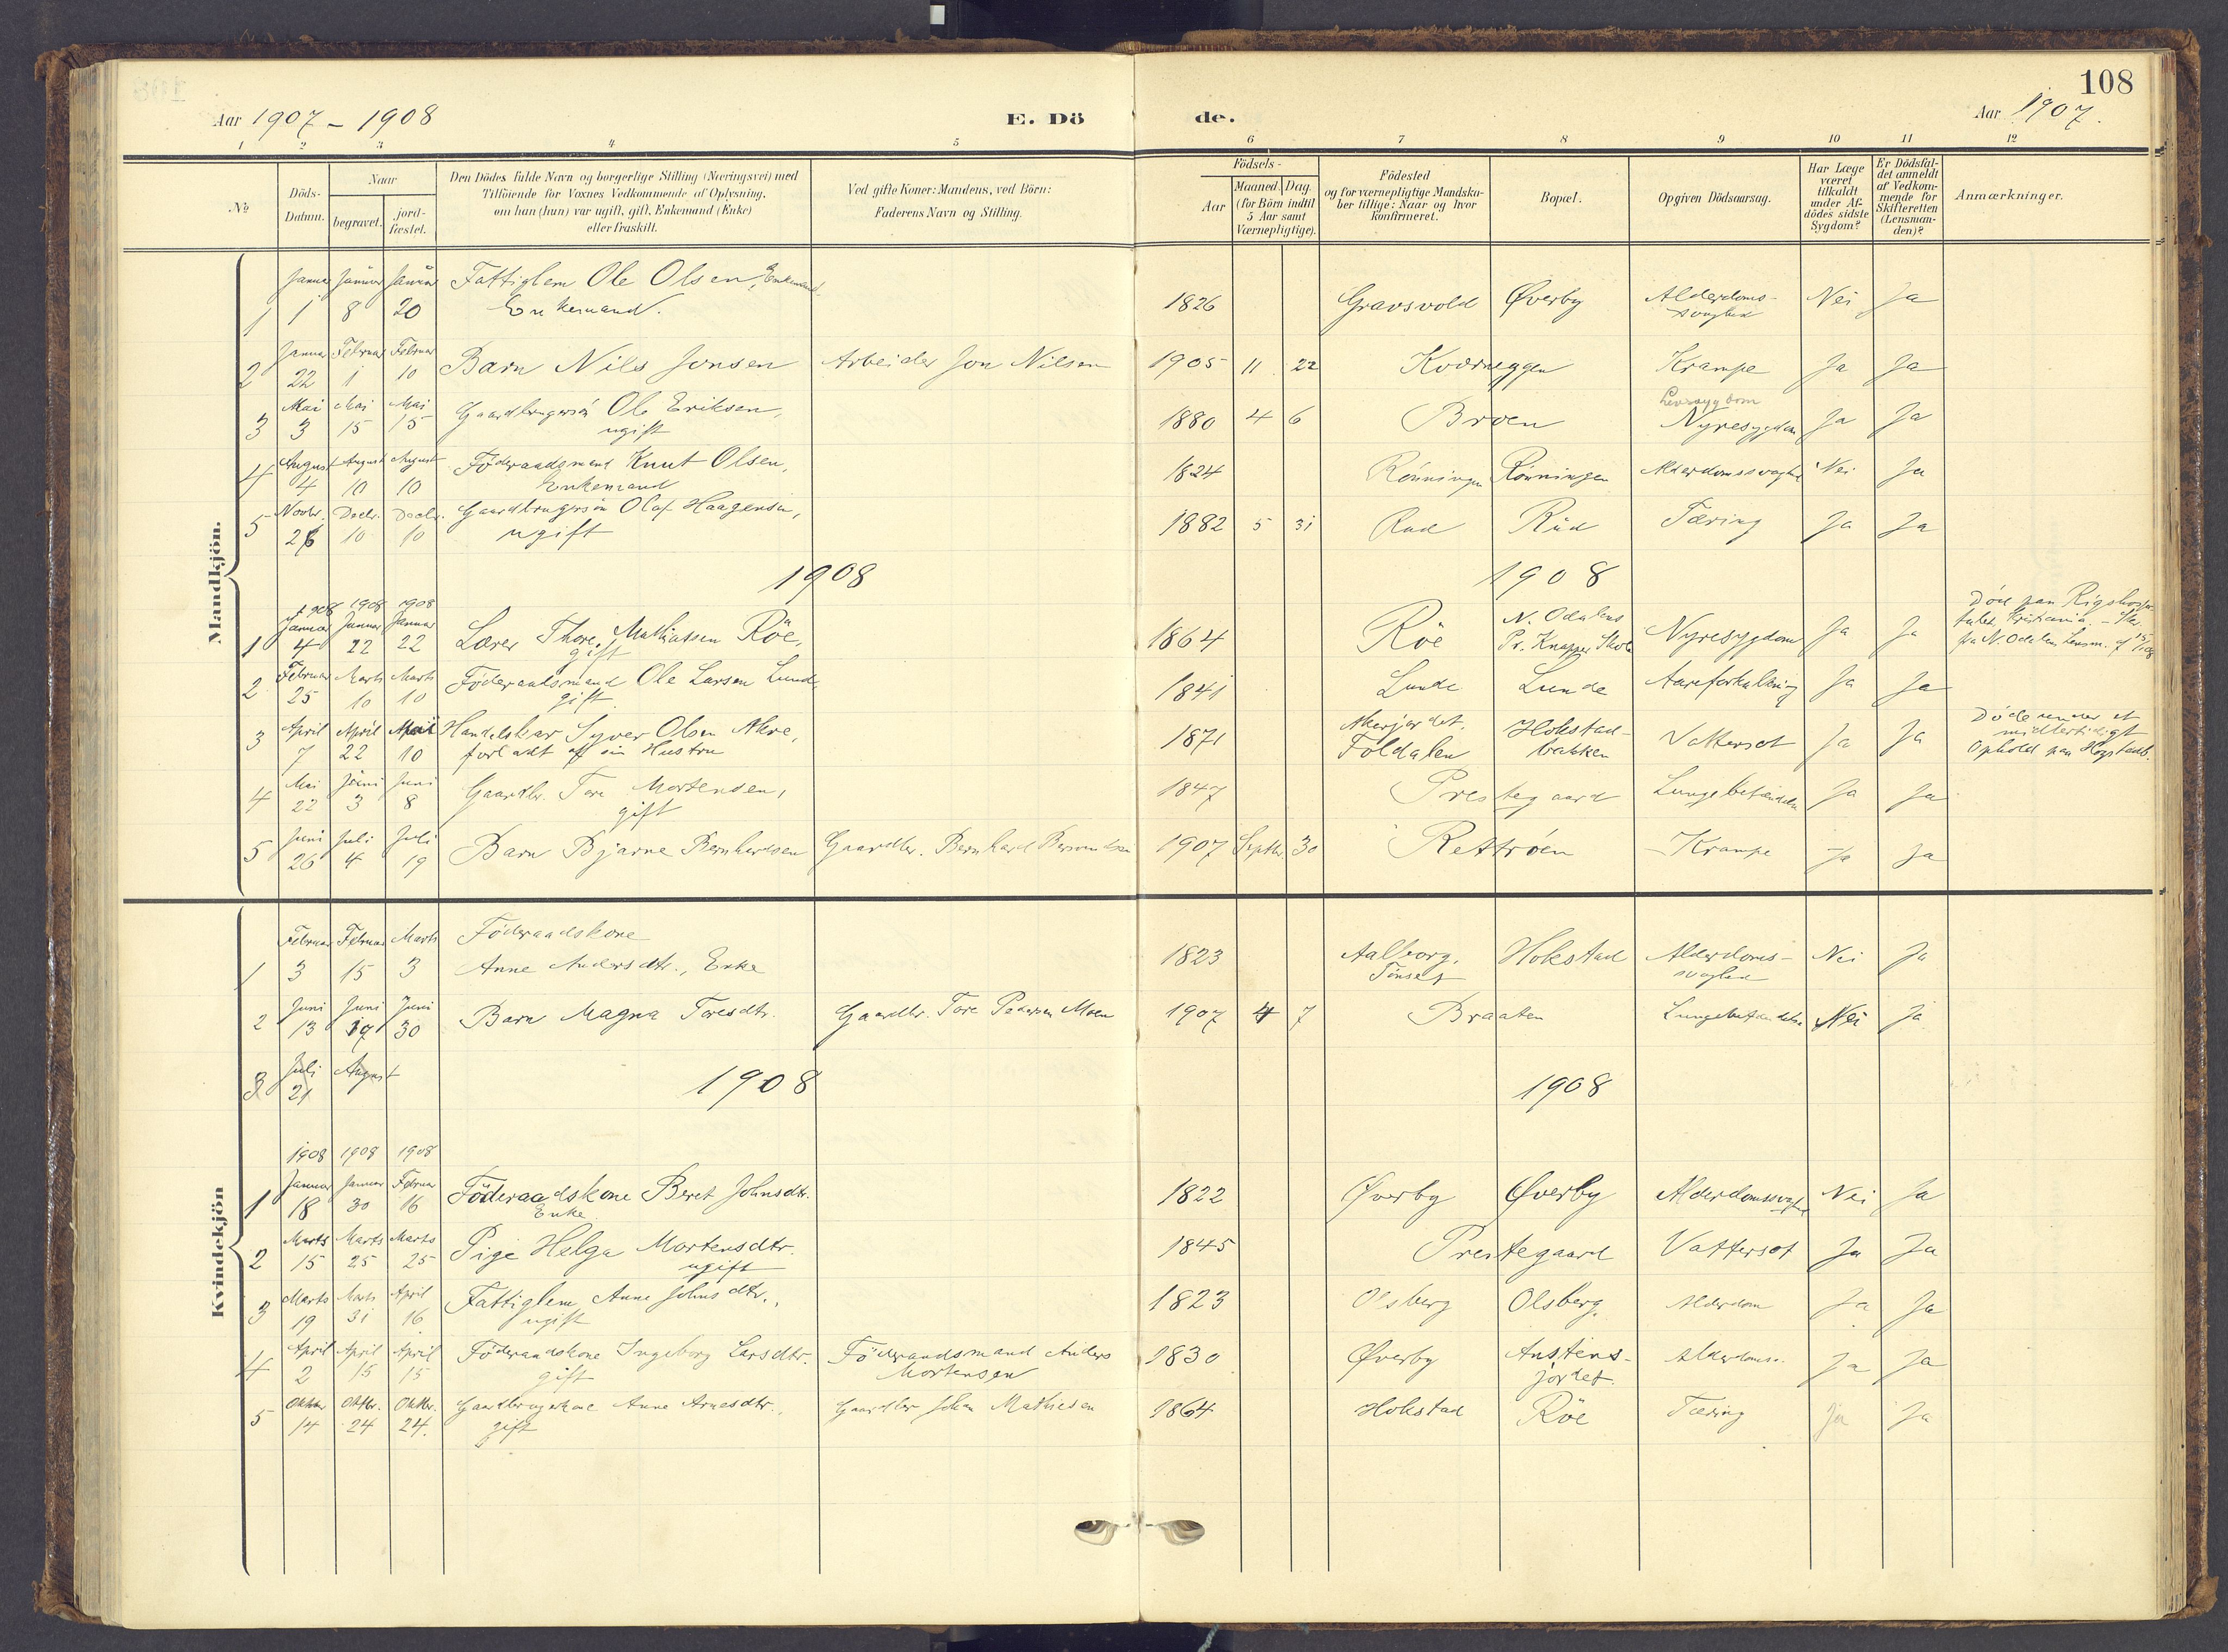 108
Aar 1907 - 1908
E. Dö
de.
Aar 1907.
1 2 3 4 5 6 7 8 9 10 11 12
№
Döds-
Datum.
Naar
begravet.
jord-
fæstet.
Den Dödes fulde Navn og borgerlige Stilling (Næringsvei) med
Tilföiende for Voxnes Vedkommende af Oplysning,
om han (hun) var ugift, gift, Enkemand (Enke)
eller fraskilt.
Ved gifte Koner: Mandens, ved Börn:
Faderens Navn og Stilling.
Födsels-
Aar
Maaned.
Dag.
(for Börn indtil
5 Aar samt
Værnepligtige).
Födested
og for værnepligtige Mandska-
ber tillige: Naar og hvor
konfirmeret.
Bopæl.
Opgiven Dödsaarsag.
Har Læge
været
tilkaldt
under Af-
dödes sidste
Sygdom?
Er Dödsfal-
det anmeldt
af Vedkom-
mende for
Skifteretten
(Lensman-
den)?
Anmærkninger.
Mandkjön.
Januar Januar Januar Fattiglem Ole Olsen, Enkemand.
1 1 8 20 Enkemand. 1826 Gravsvold Øverby Alderdoms- Nei Ja
svaghed
Januar Februar Februar
2 22 1 10 Barn Nils Jonsen Arbeider Jon Nilsen 1905 11 22 Kværneggen Krampe Ja Ja
Mai Mai Mai Gaardbrugersön Ole Eriksen, Leversygdom
3 3 15 15 ugift 1880 4 6 Broen Nyresygdom Ja Ja
August August August Föderaadsmand Knut Olsen,
4 4 10 10 Enkemand 1824 Rönningen Rönningen Alderdomssvaghed Nei Ja
Novbr. Decbr. Decbr. Gaardbrugersön Olaf Haagensen,
5 26 10 10 ugift 1882 5 31 Rud Rud Tæring Ja Ja
1908 1908
1908 1908 1908
Januar Januar Januar
1 4 22 22 Lærer Thore Mathiassen Röe, gift 1864 Röe N. Odalens Pr. Knapper Skole Nyresygdom Ja Ja
Död paa Rigshospi-
talet, Kristiania.
fra N. Odalen Lensm.
Februar Marts Marts Föderaadsmand Ole Larsen Lund,
2 25 10 10 gift 1841 Lunde Lunde Aareforkalkning Ja Ja
April April Mai Handelskar Syver Olsen Akre,
3 7 22 10 forladt af sin Hustru 1871 Akerjordet. Foldalen Hokstad-bakken Vattersot Ja Ja
Döde under et
midlertidigt
Ophold paa Hogstadb.
Mai Juni Juni Gaardbr. Tore Mortensen,
4 22 3 8 gift 1847 Prestegaard Lungebetændelse Ja Ja
Juni Juli Juli
5 26 4 19 Barn Bjarne Bernhardsen Gaardbr. Bernhard 1907 Septbr. 30 Rettröen Krampe Ja Ja
Kvindekjön
Februar Februar Marts Föderaadskone
1 3 15 3 Anne Andersdtr., Enke 1823 Aalborg, Tönset Hokstad Alderdoms- Nei Ja
svaghed
Juni Juni Juni
2 13 17 30 Barn Magna Toresdtr. Gaardbr. Tore Pedersen Moen 1907 4 7 Braaten Lungebetændelse Nei Ja
Juli August
3 21
1908 1908
1908 1908 1908
Januar Januar Februar
1 18 30 16 Föderaadskone Beret Johnsdtr. Enke 1822 Øverby Øverby Alderdomssvaghed Nei Ja
Marts Marts Marts
2 15 25 25 Pige Helga Mortensdtr. ugift 1845 Prestegaard Vattersot Ja Ja
Marts Marts April
3 19 31 16 Fattiglem Anne Johnsdtr., ugift 1823 Olsberg Olsberg. Alderdom Ja Ja
April April April
4 2 15 15 Föderaadskone Ingeborg Larsdtr. gift Föderaadsmand Anders Mortensen 1830 Øverby Anstens-jordet. Alderdoms. Ja Ja
Oktbr Oktbr. Oktbr.
5 14 24 24. Gaardbrugerkone Anne Arnesdtr., gift Gaardbr John Mathiesen 1864 Hokstad Röe Tæring Ja Ja